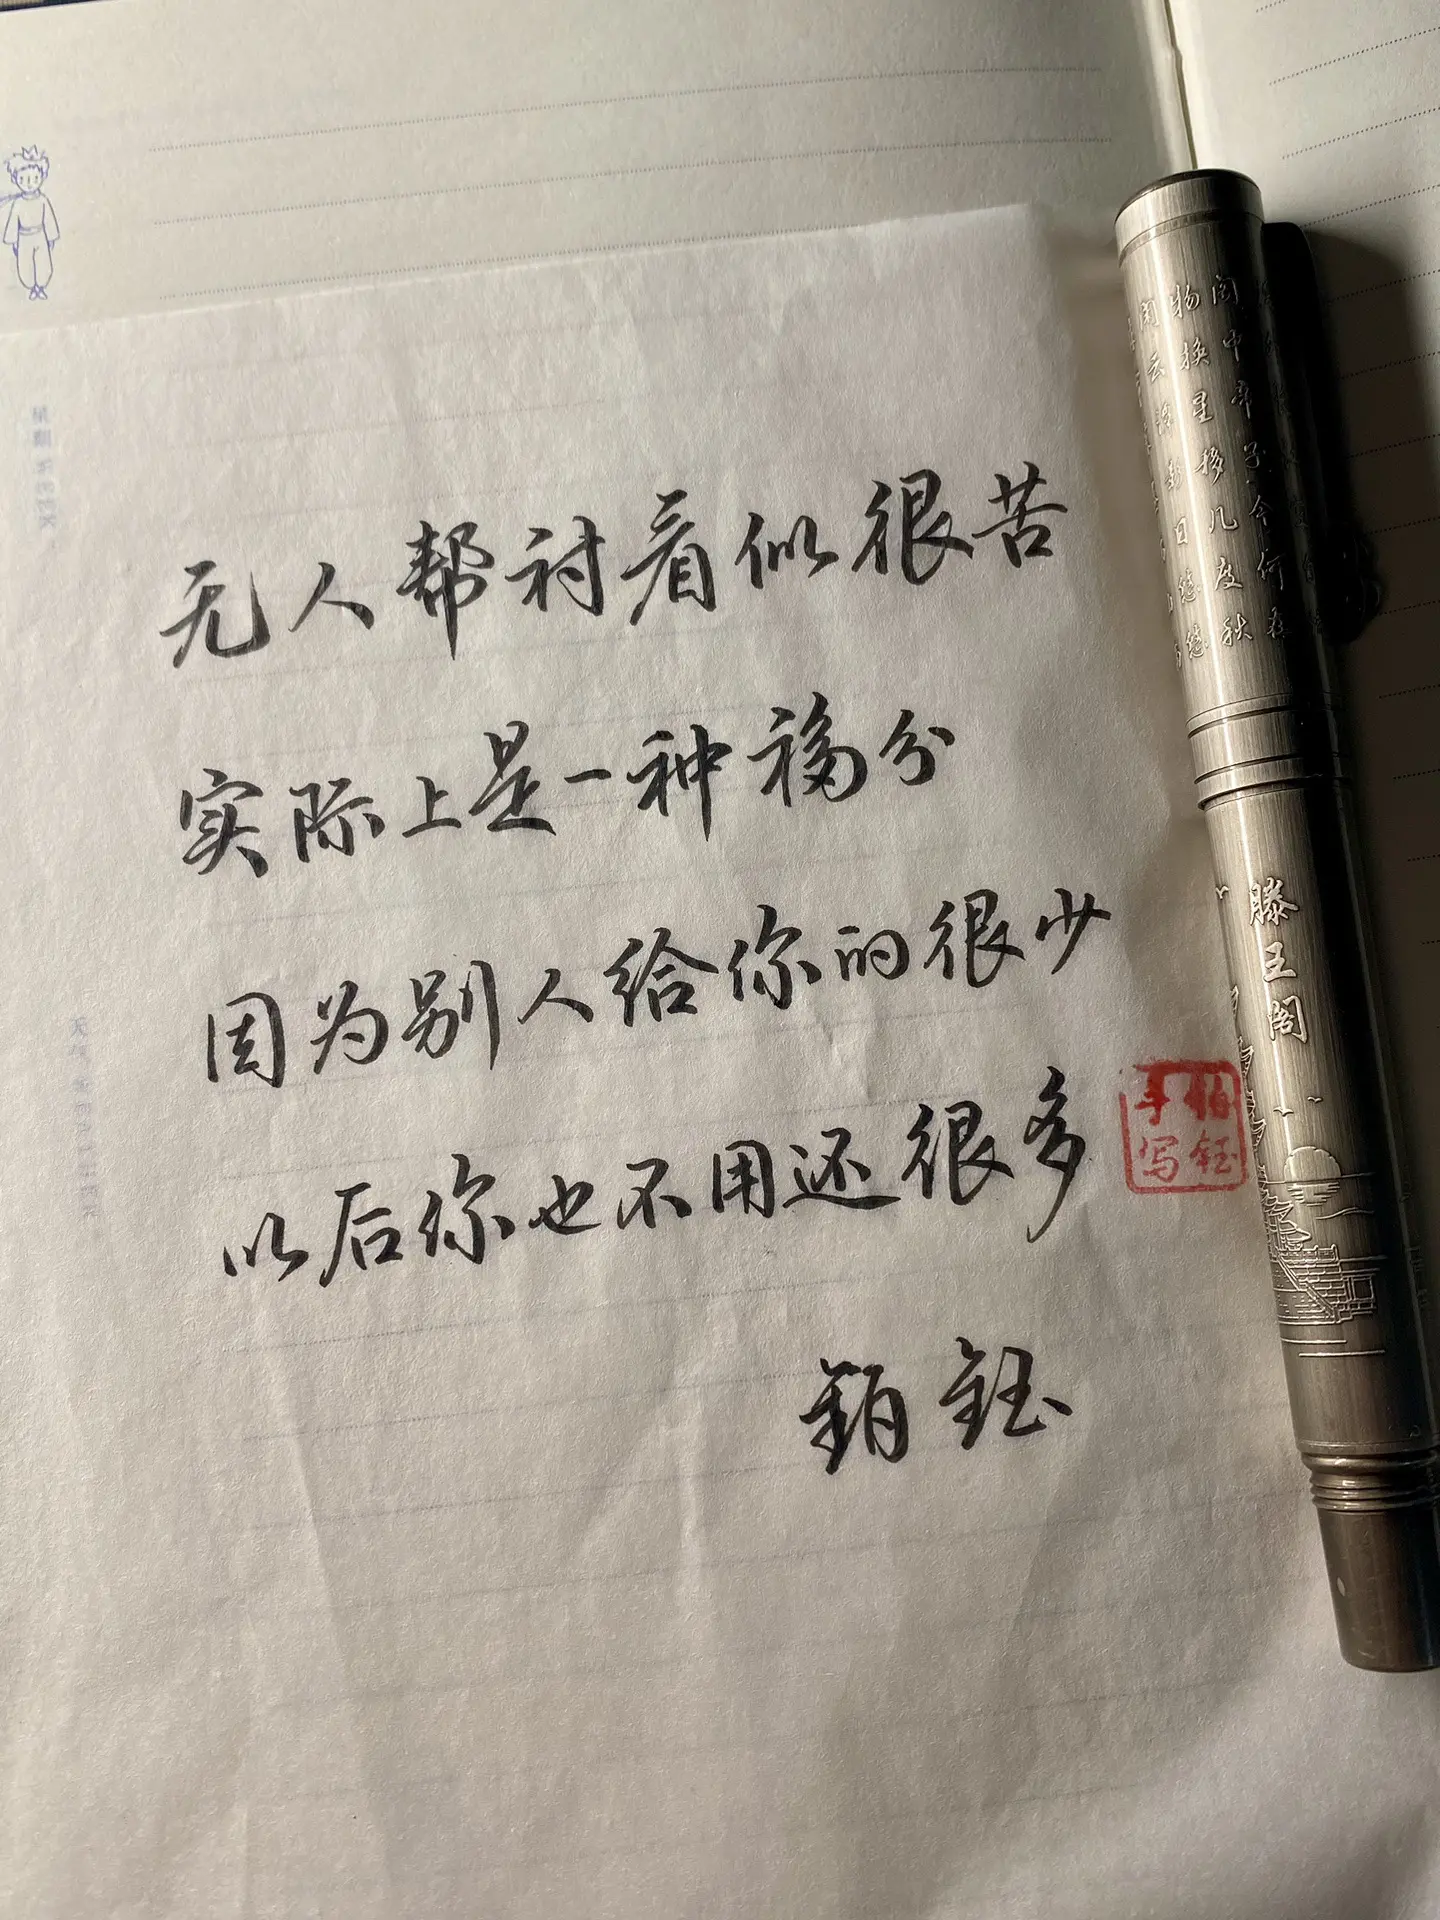 无人帮衬看似很苦
实际上是一种福分
因为别人给你的很少
以后你也不用还很多
钰
手
写钰
阁中帝子今何在
物换星移几度秋
闲云潭影日悠悠
滕王阁